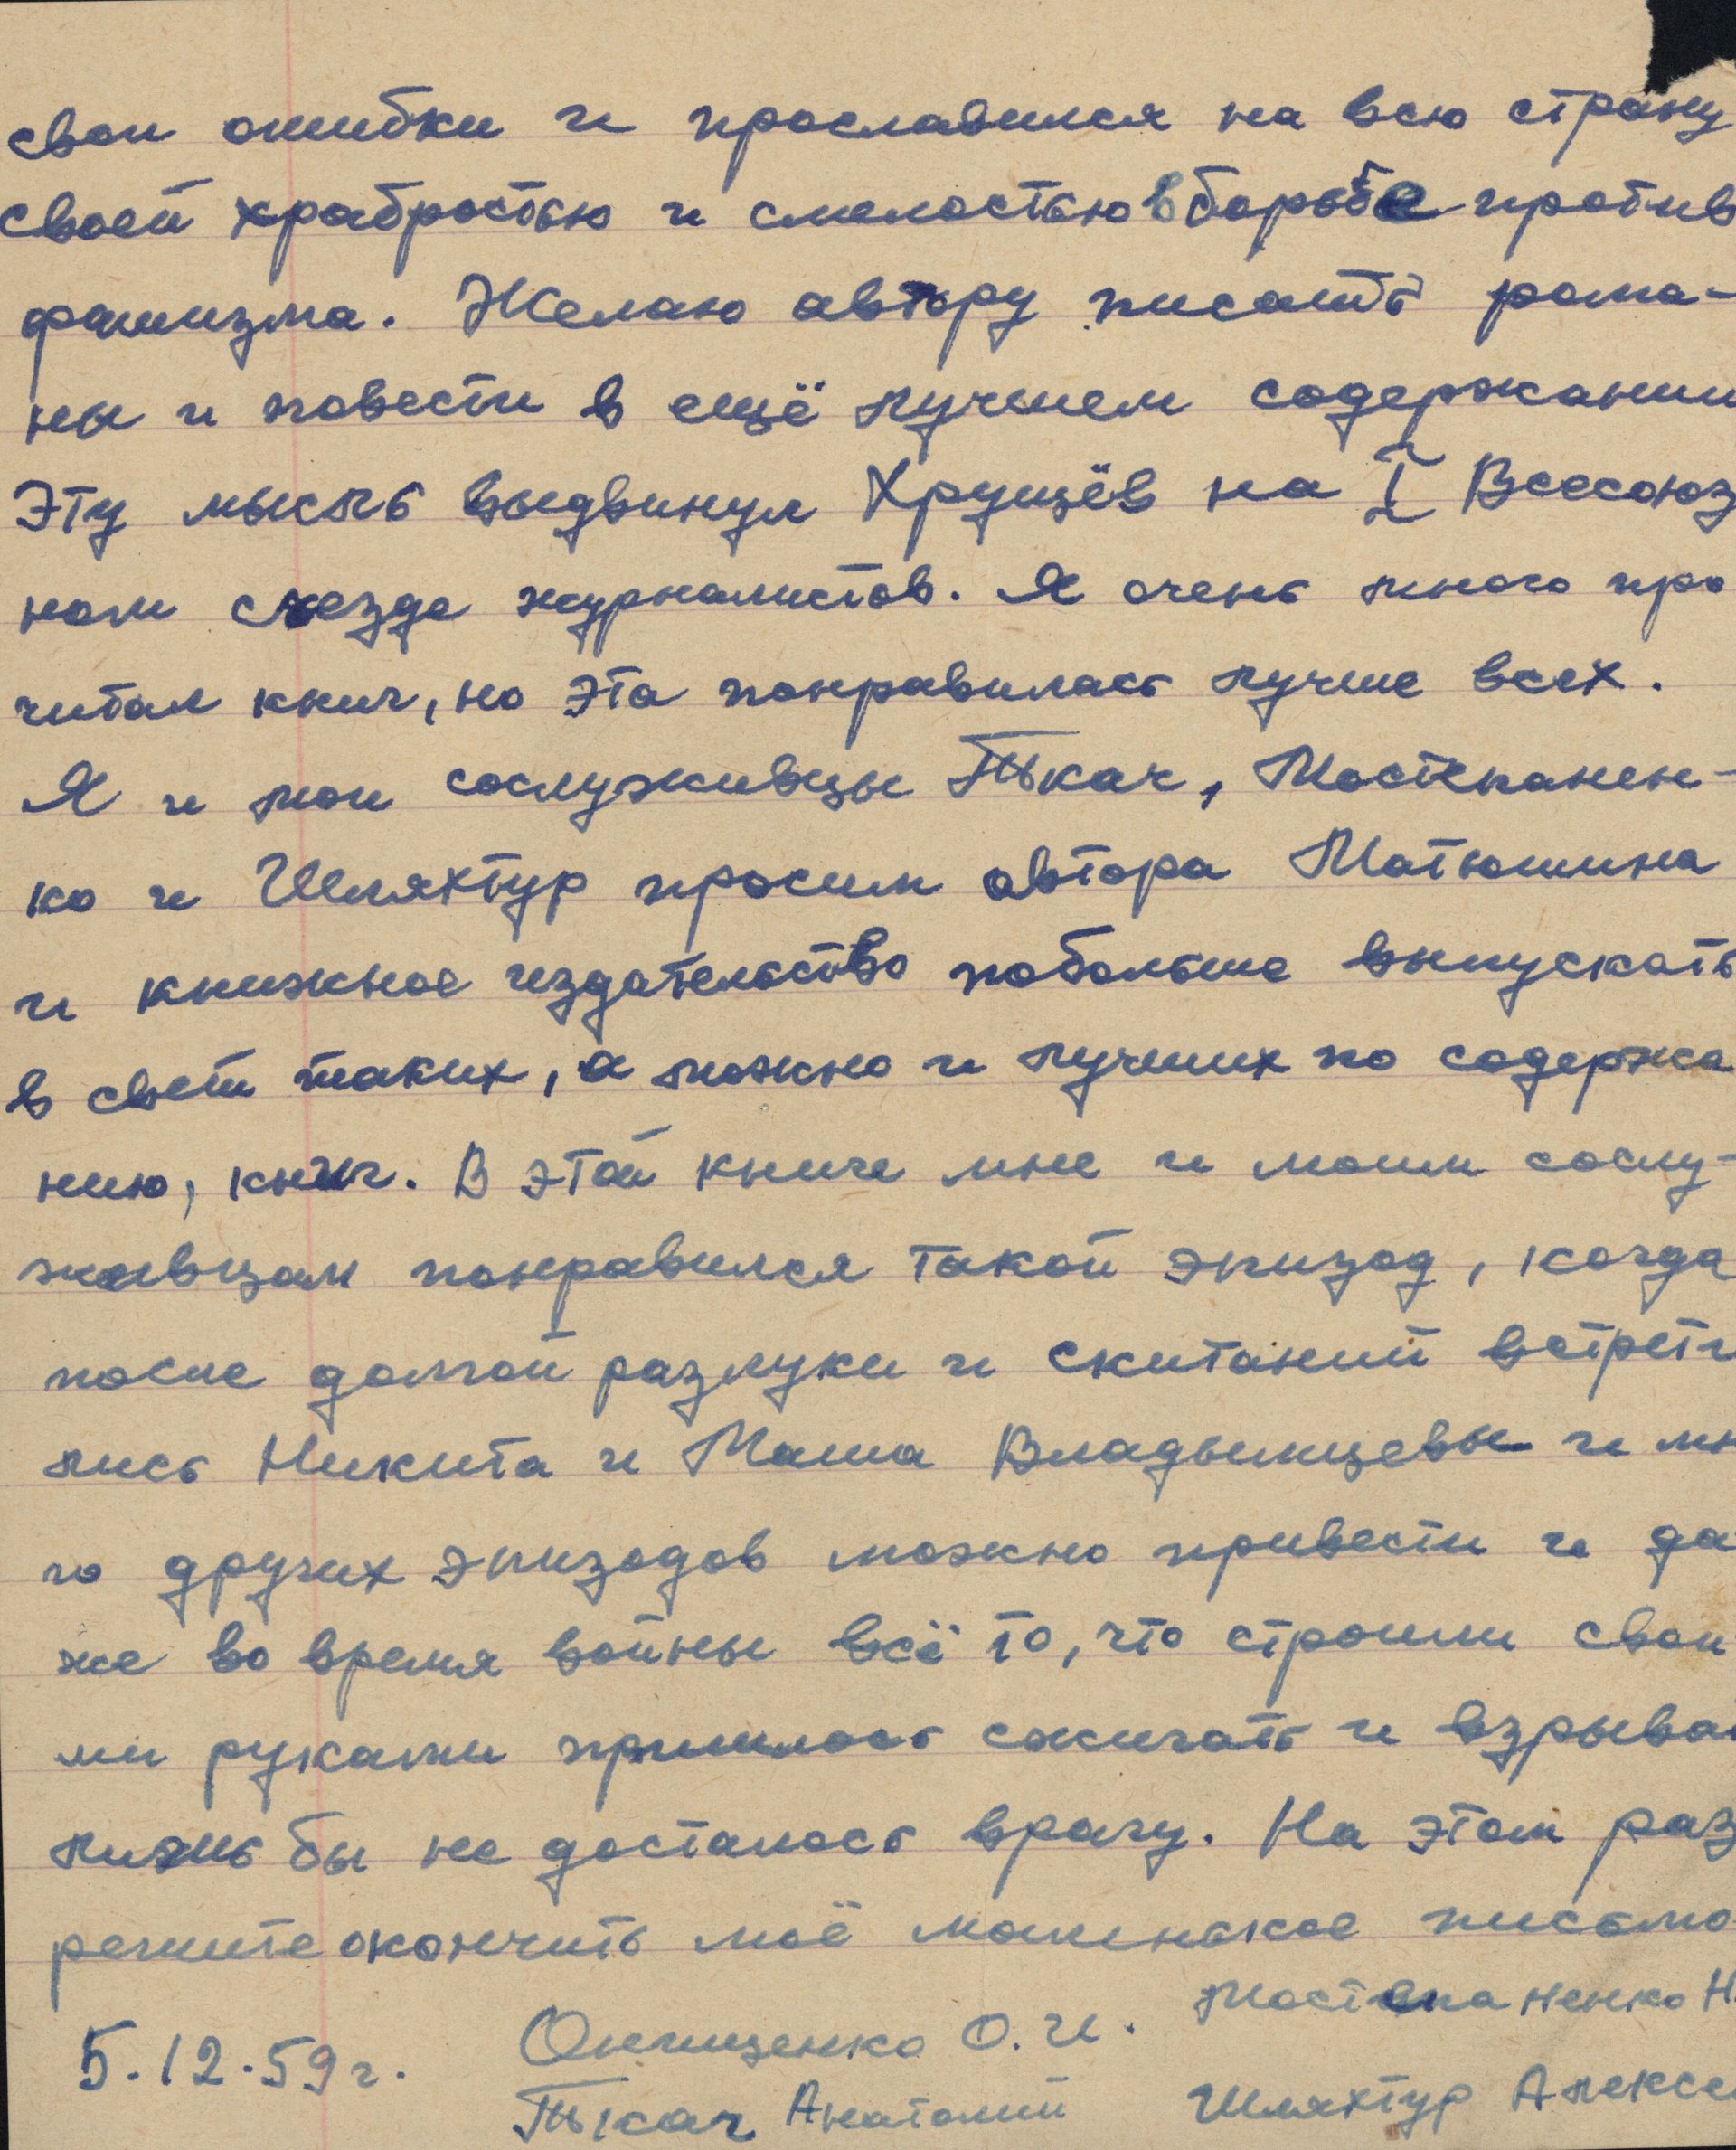 свои ошибки и прославился на всю страну
своей храбростью и смелостью в борьбе против
фашизма. Желаю автору писать рома-
ны и повести в ещё лучшем содержании
Эту мысль выдвинул Хрущёв на I Всесоюз
ном съезде журналистов. Я очень много про
читал книг, но эта понравилась лучше всех.
Я и мои сослуживцы Ткач, Мостепанен-
ко и Шляхтур просим автора Матюшина
и книжное издательство побольше выпускать
в свет таких, а можно и лучших по содержа
нию, книг. В этой книге мне и моим сослу-
живцам понравился такой эпизод, когда
после долгой разлуки и скитаний встрети
лись Никита и Маша Владынцевы и мн
го других эпизодов можно привести и да
же во время войны всё то, что строили свои
ми руками пришлось сжигать и взрыва
лишь бы не досталось врагу. На этом раз
решите окончить моё маленькое письмо
5.12.59г. Онищенко О.И. Мостепаненко Н.
Ткач Анатолий Шляхтур Алексе